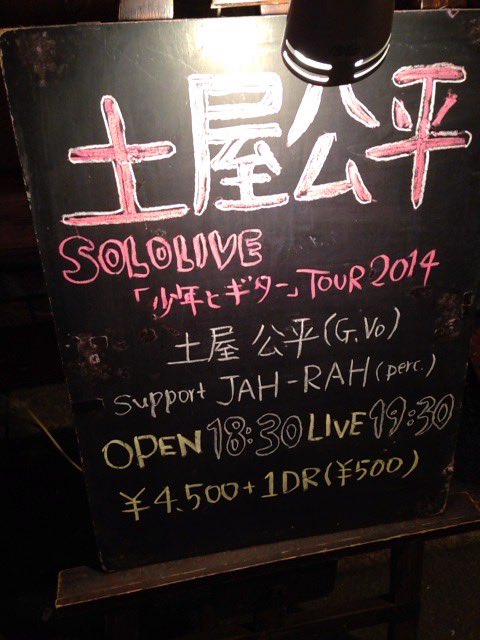 土屋公平
SOLOLIVE
「少年とギター」TOUR 2014
土屋 公平(G.Vo)
support JAH-RAH(perc.)
OPEN 18:30 LIVE 19:30
¥4.500+1DR(¥500)